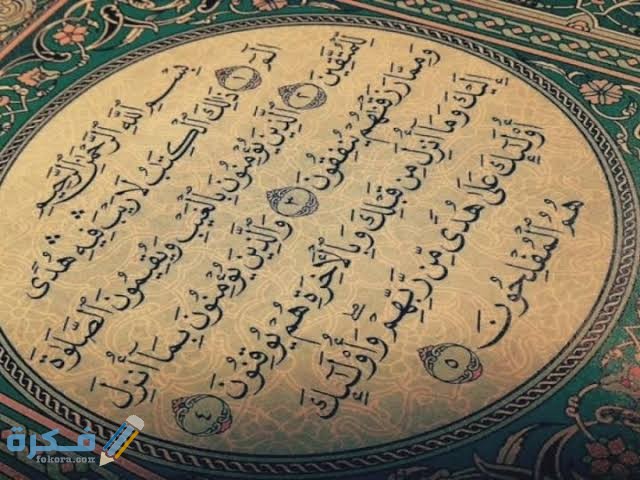 بِسْمِ ٱللَّهِ ٱلرَّحْمَٰنِ ٱلرَّحِيمِ
الٓمٓ ١ ذَٰلِكَ ٱلْكِتَٰبُ لَا رَيْبَ ۛ فِيهِ ۛ هُدًى
لِّلْمُتَّقِينَ ٢ ٱلَّذِينَ يُؤْمِنُونَ بِٱلْغَيْبِ وَيُقِيمُونَ ٱلصَّلَوٰةَ
وَمِمَّا رَزَقْنَٰهُمْ يُنفِقُونَ ٣ وَٱلَّذِينَ يُؤْمِنُونَ بِمَآ أُنزِلَ
إِلَيْكَ وَمَآ أُنزِلَ مِن قَبْلِكَ وَبِٱلْءَاخِرَةِ هُمْ يُوقِنُونَ ٤
أُو۟لَٰٓئِكَ عَلَىٰ هُدًى مِّن رَّبِّهِمْ ۖ وَأُو۟لَٰٓئِكَ
هُمُ ٱلْمُفْلِحُونَ ٥
فكرة
fokora.com